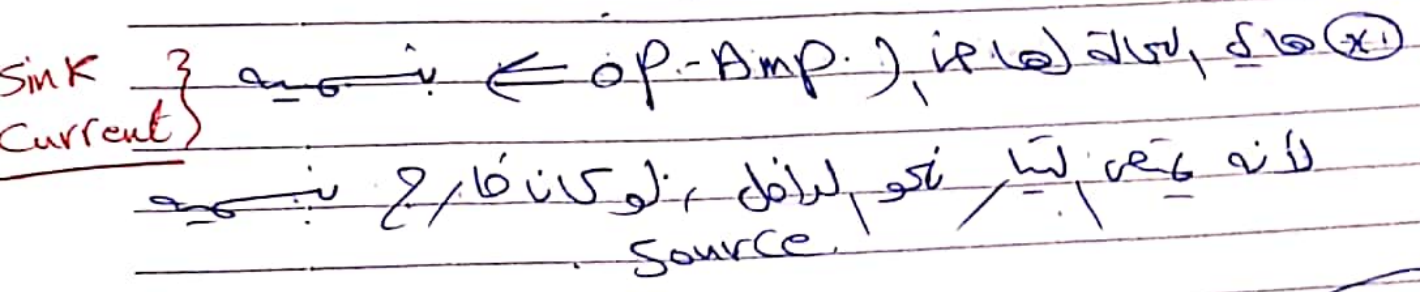 (x1) هاي الحالة لما يجي (Op-Amp. ← بنسميه { Sink Current
لأنه يمتص التيار نحو الداخل، لو كان خارج بنسميه
Source.